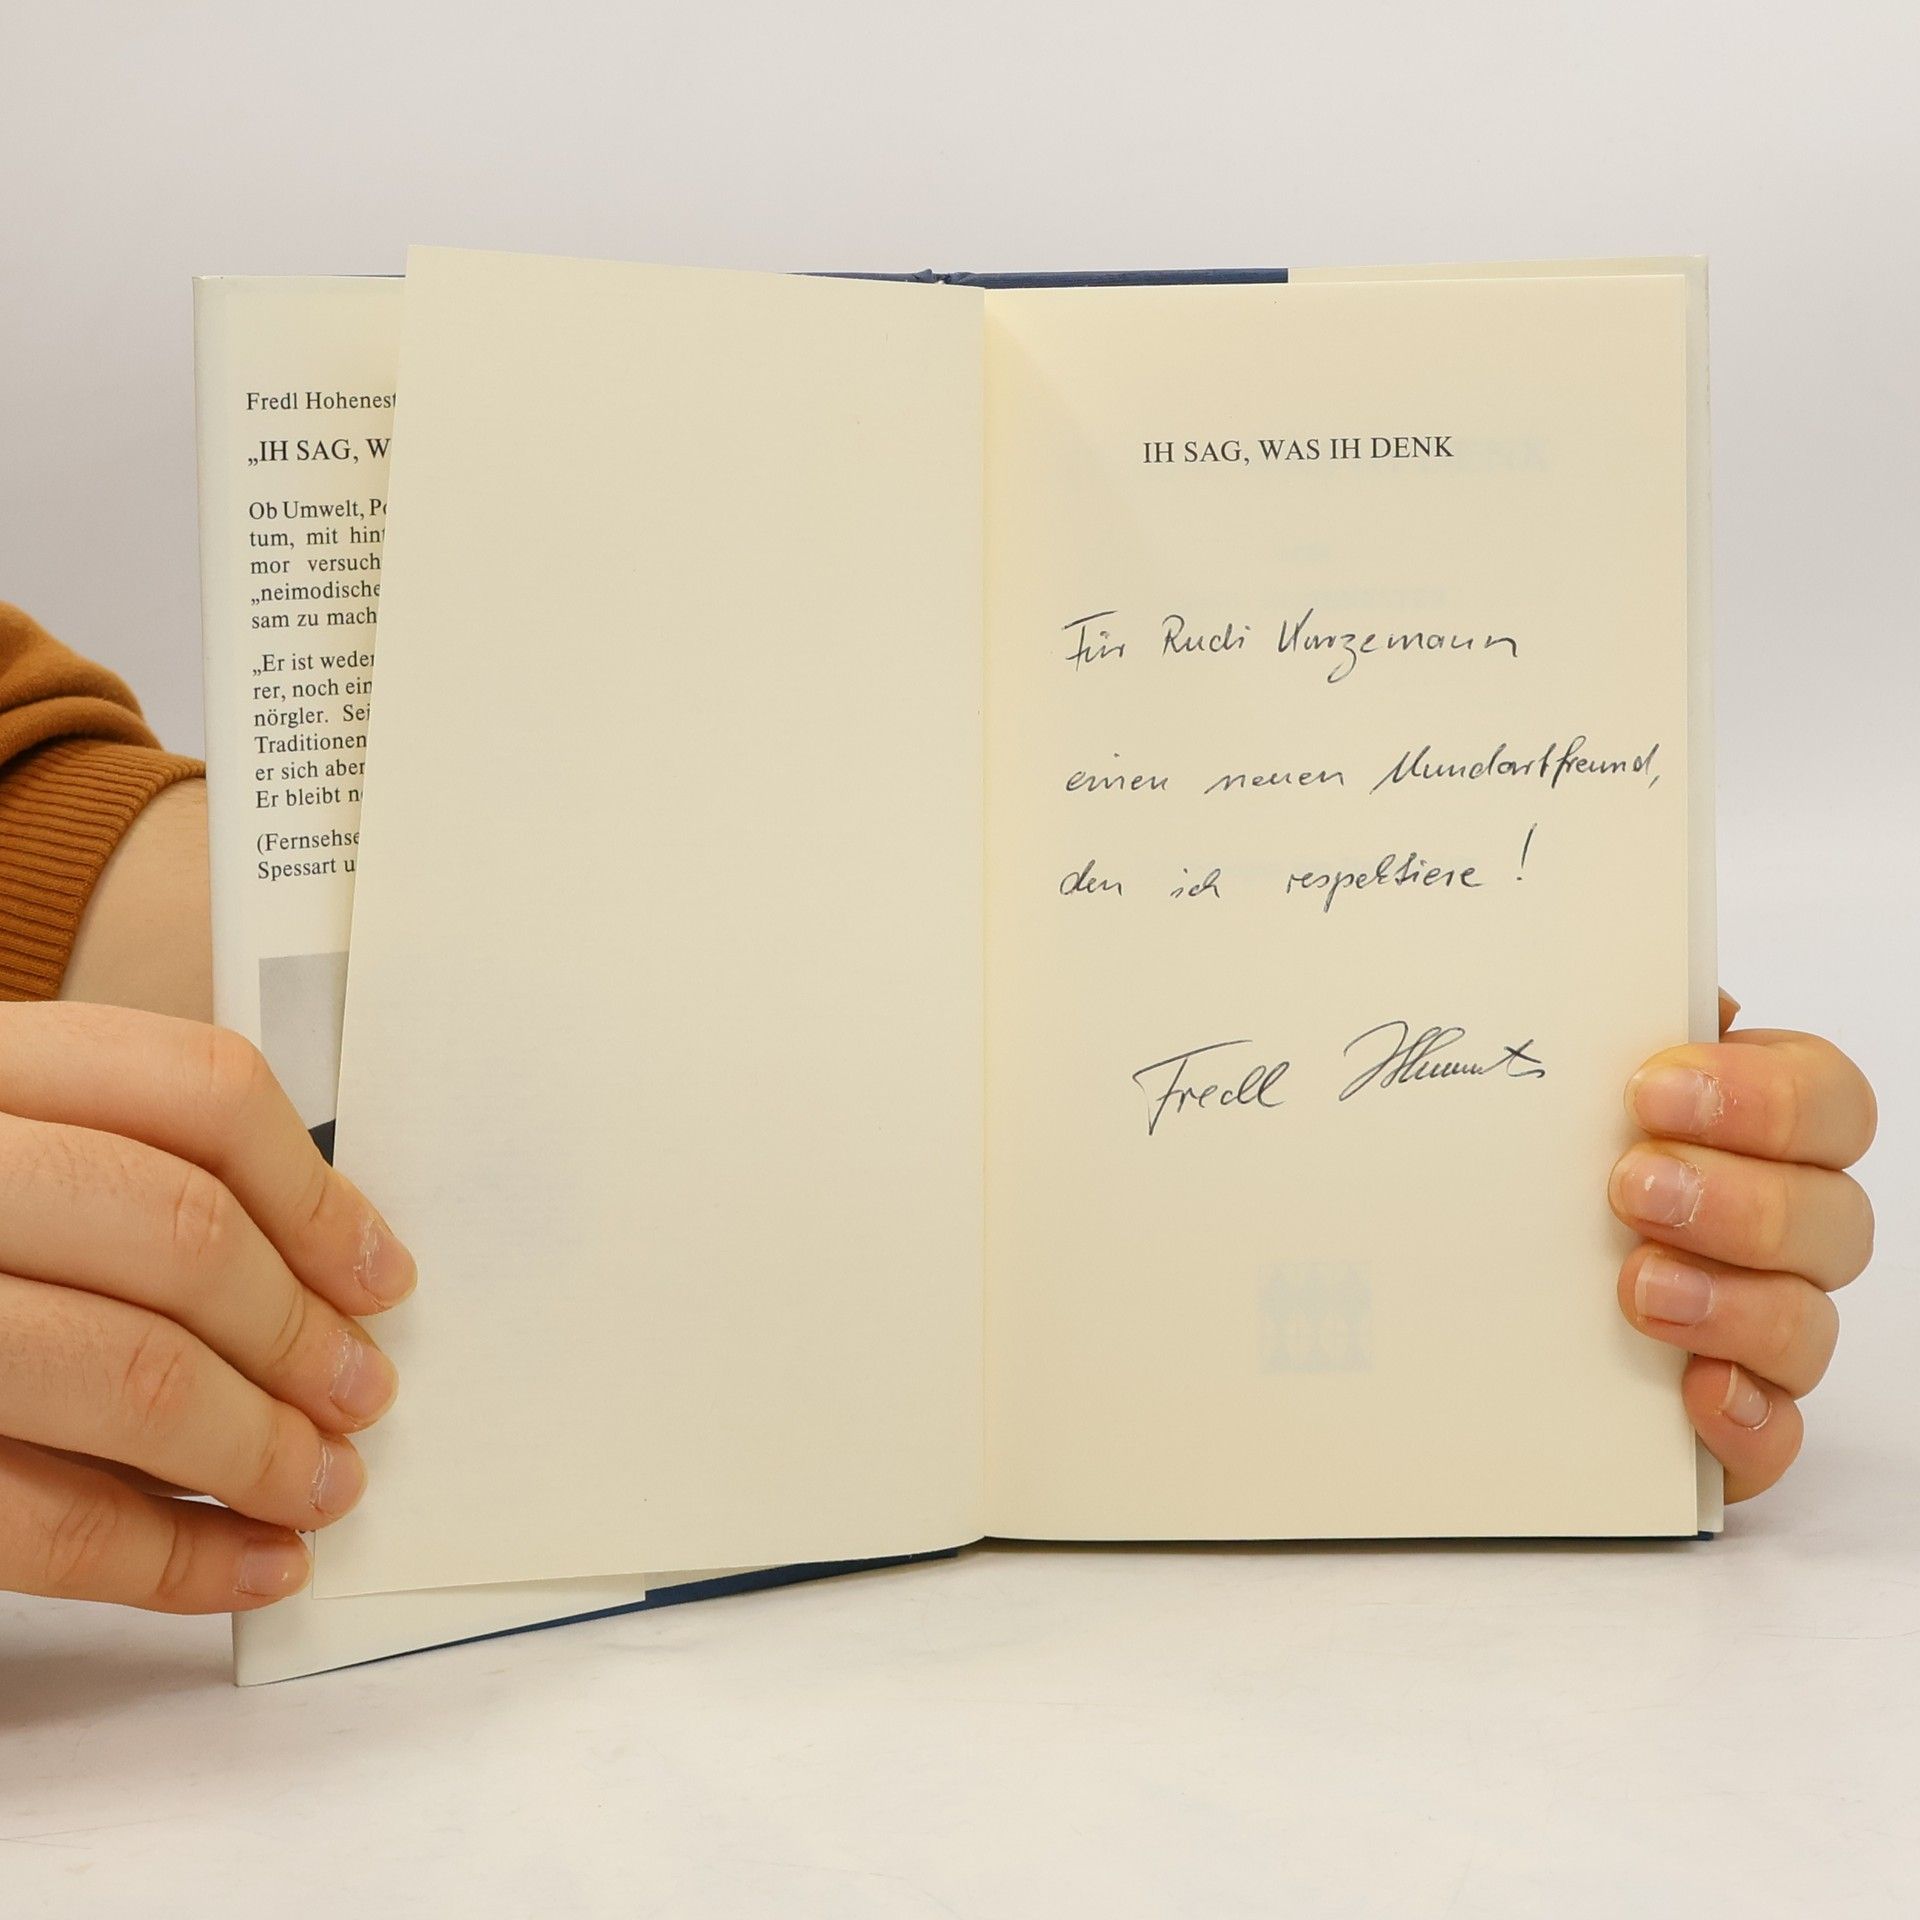 Fredl Hohenest
„IH SAG, W
Ob Umwelt, Po
tum, mit hint
mor versuch
„neimodische
sam zu mach
„Er ist weder
rer, noch ein
nörgler. Sei
Traditionen
er sich aber
Er bleibt n
(Fernsehse
Spessart u
IH SAG, WAS IH DENK
Für Rudi Kurzemann
einen neuen Mundartfreund,
den ich respektiere !
Fredl